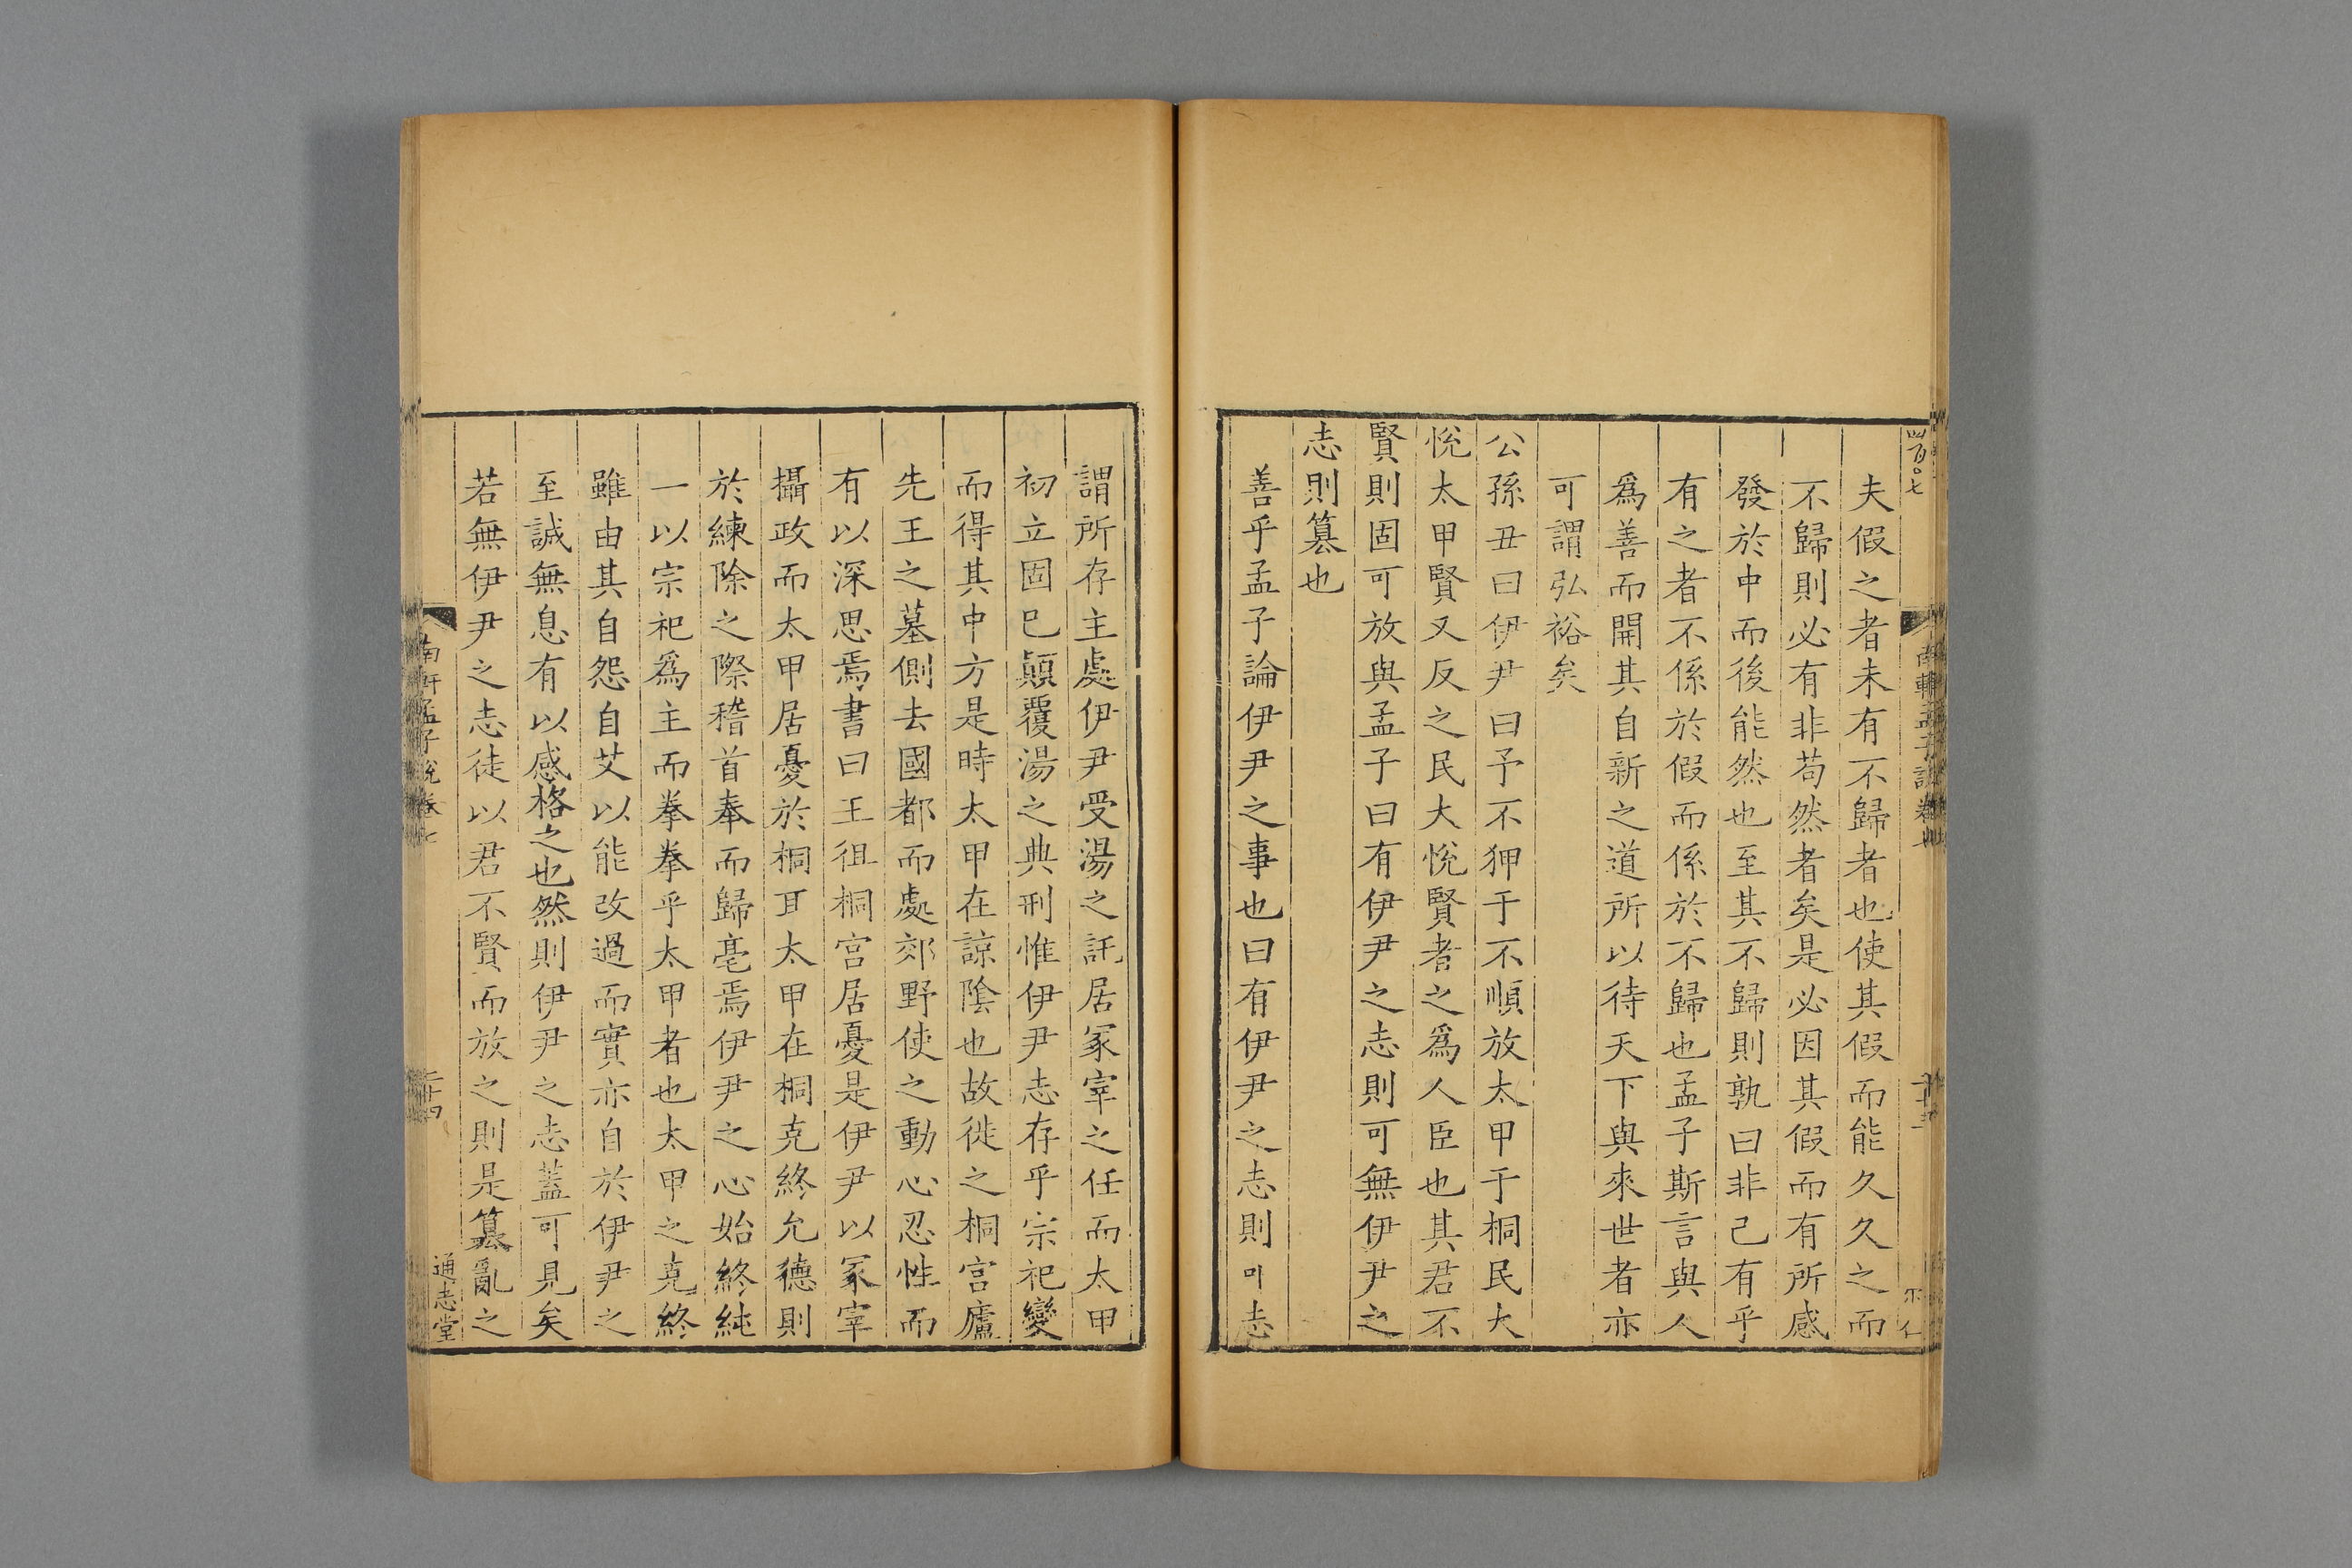 夫假之者未有不歸者也使其假而能久久之而
不歸則必有非苟然者矣是必因其假而有所感
發於中而後能然也至其不歸則孰曰非己有乎
有之者不係於假而係於不歸也孟子斯言與人
爲善而開其自新之道所以待天下與來世者亦
可謂弘裕矣
公孫丑曰伊尹曰予不狎于不順放太甲于桐民大
悅太甲賢又反之民大悅賢者之爲人臣也其君不
賢則固可放與孟子曰有伊尹之志則可無伊尹之
志則篡也
善乎孟子論伊尹之事也曰有伊尹之志則可志
謂所存主處伊尹受湯之託居冢宰之任而太甲
初立固已顛覆湯之典刑惟伊尹志存乎宗祀變
而得其中方是時太甲在諒陰也故徙之桐宮廬
先王之墓側去國都而處郊野使之動心忍性而
有以深思焉書曰王徂桐宮居憂是伊尹以冢宰
攝政而太甲居憂於桐耳太甲在桐克終允德則
於練除之際稽首奉而歸亳焉伊尹之心始終純
一以宗祀爲主而拳拳乎太甲者也太甲之克終
雖由其自怨自艾以能改過而實亦自於伊尹之
至誠無息有以感格之也然則伊尹之志蓋可見矣
若無伊尹之志徒以君不賢而放之則是篡亂之
南軒孟子說卷七
二十四
通志堂